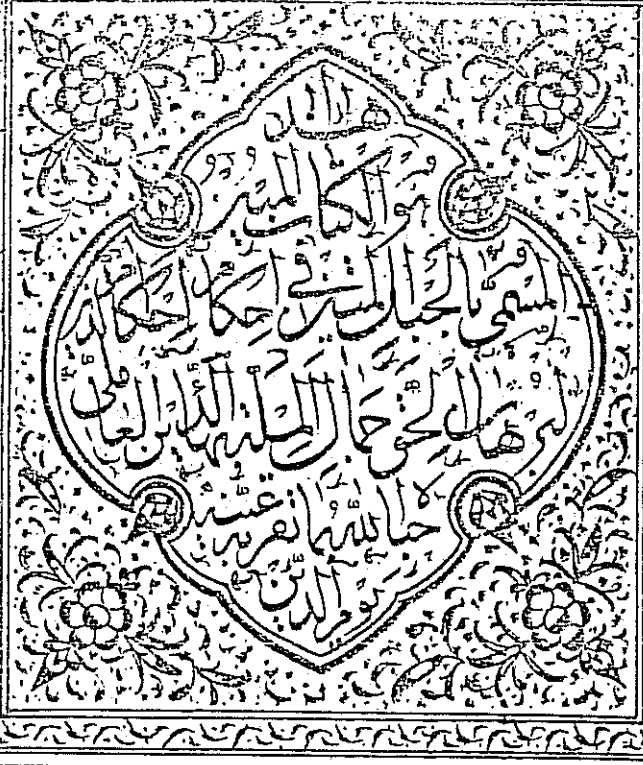 هذا
هو الكتاب المبين
المسمى بالحبل المتين في احكام احكام الدين
لبرهان الحق جمال الملة بهاء الدين العاملي
حباه الله بما تقر به عينه
يوم الدين